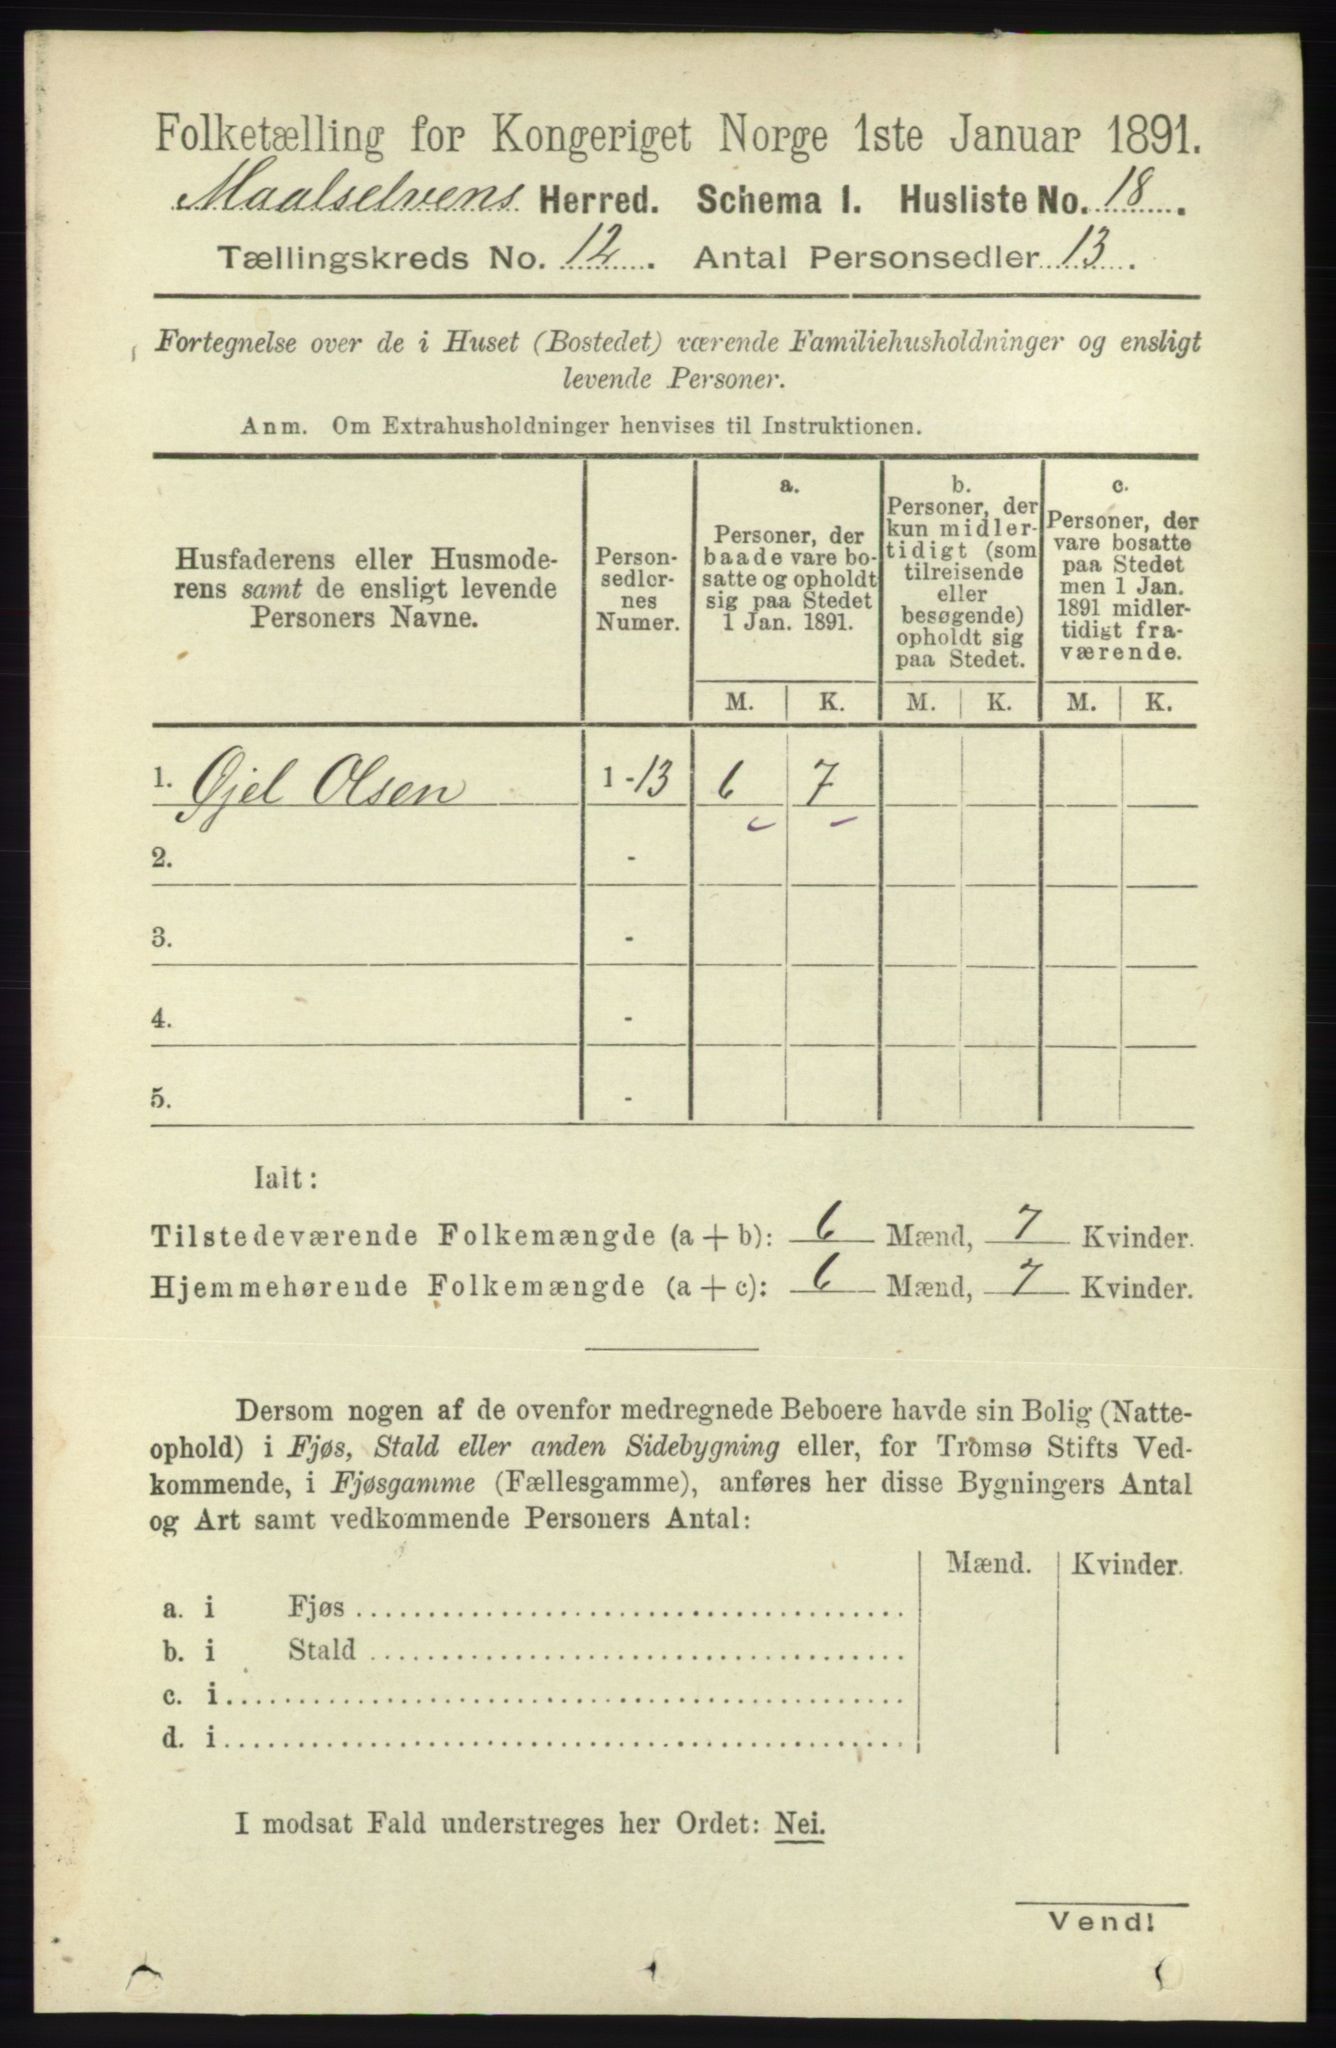 Folketælling for Kongeriget Norge 1ste Januar 1891.
Maalselvens Herred. Schema I. Husliste No. 18.
Tællingskreds No. 12. Antal Personsedler 13.
Fortegnelse over de i Huset (Bostedet) værende Familiehusholdninger og ensligt
levende Personer.
Anm. Om Extrahusholdninger henvises til Instruktionen.
Husfaderens eller Husmode-
rens samt de ensligt levende
Personers Navne.
Person-
sedler-
nes
Numer.
a.
Personer, der
baade vare bo-
satte og opholdt
sig paa Stedet
1 Jan. 1891.
b.
Personer, der
kun midler-
tidigt (som
tilreisende
eller
besøgende)
opholdt sig
paa Stedet.
c.
Personer, der
vare bosatte
paa Stedet
men 1 Jan.
1891 midler-
tidigt fra-
værende.
M. K. M. K. M. K.
1. Øjel Olsen 1 - 13 6 7
2. -
3. -
4. -
5. -
Ialt:
Tilstedeværende Folkemængde (a + b): 6 Mænd, 7 Kvinder.
Hjemmehørende Folkemængde (a + c): 6 Mænd, 7 Kvinder.
Dersom nogen af de ovenfor medregnede Beboere havde sin Bolig (Natte-
ophold) i Fjøs, Stald eller anden Sidebygning eller, for Tromsø Stifts Ved-
kommende, i Fjøsgamme (Fællesgamme), anføres her disse Bygningers Antal
og Art samt vedkommende Personers Antal:
Mænd. Kvinder.
a. i Fjøs
b. i Stald
c. i
d. i
I modsat Fald understreges her Ordet: Nei.
Vend!